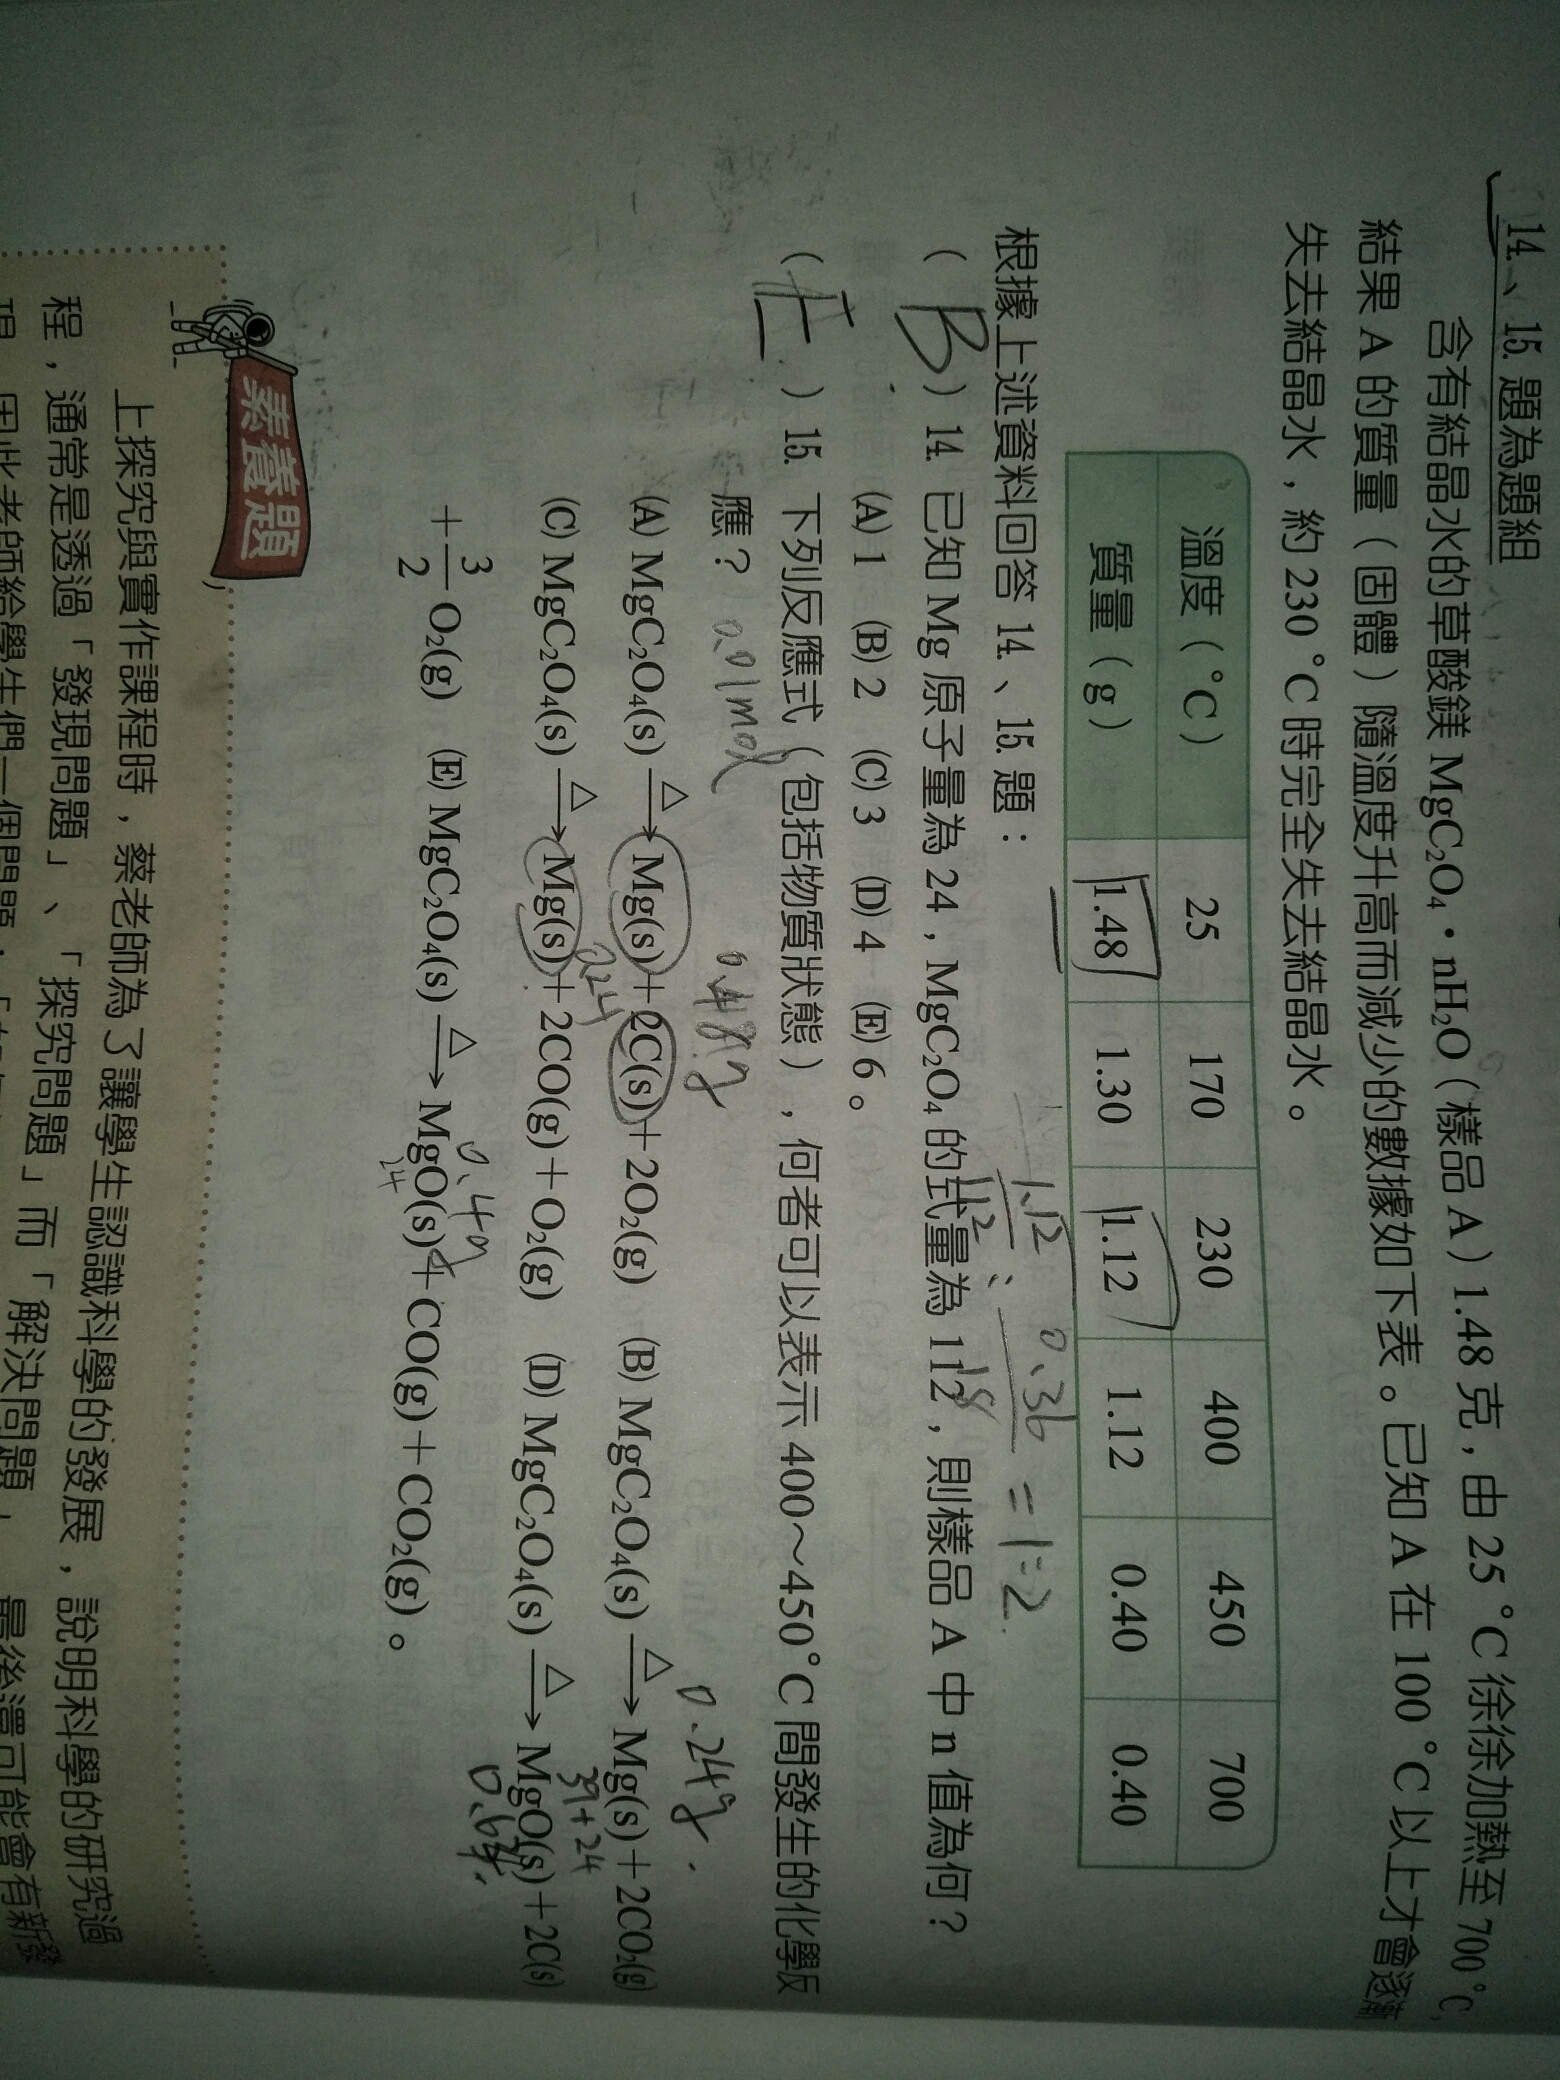 14、15. 題為題組
含有結晶水的草酸鎂 MgC₂O₄・nH₂O（樣品 A）1.48 克，由 25 ℃徐徐加熱至 700 ℃，
結果 A 的質量（固體）隨溫度升高而減少的數據如下表。已知 A 在 100 ℃以上才會逐漸
失去結晶水，約 230 ℃時完全失去結晶水。
溫度（℃） 25 170 230 400 450 700
質量（g） 1.48 1.30 1.12 1.12 0.40 0.40
1.12 0.36
112 : 18 = 1:2
根據上述資料回答 14、15. 題：
（ B ）14. 已知 Mg 原子量為 24，MgC₂O₄ 的式量為 112，則樣品 A 中 n 值為何？
(A) 1 (B) 2 (C) 3 (D) 4 (E) 6。
（ E ）15. 下列反應式（包括物質狀態），何者可以表示 400～450℃間發生的化學反
應？ 0.01mol 0.48g 0.24g
(A) MgC₂O₄(s) △→ Mg(s)+2C(s)+2O₂(g) (B) MgC₂O₄(s) △→ Mg(s)+2CO₂(g)
0.24
(C) MgC₂O₄(s) △→ Mg(s)+2CO(g)+O₂(g) (D) MgC₂O₄(s) △→ MgO(s)+2C(s)
0.4g
+3/2 O₂(g) (E) MgC₂O₄(s) △→ MgO(s)+CO(g)+CO₂(g)。
24
素養題
上探究與實作課程時，蔡老師為了讓學生認識科學的發展，說明科學的研究過
程，通常是透過「發現問題」、「探究問題」而「解決問題」